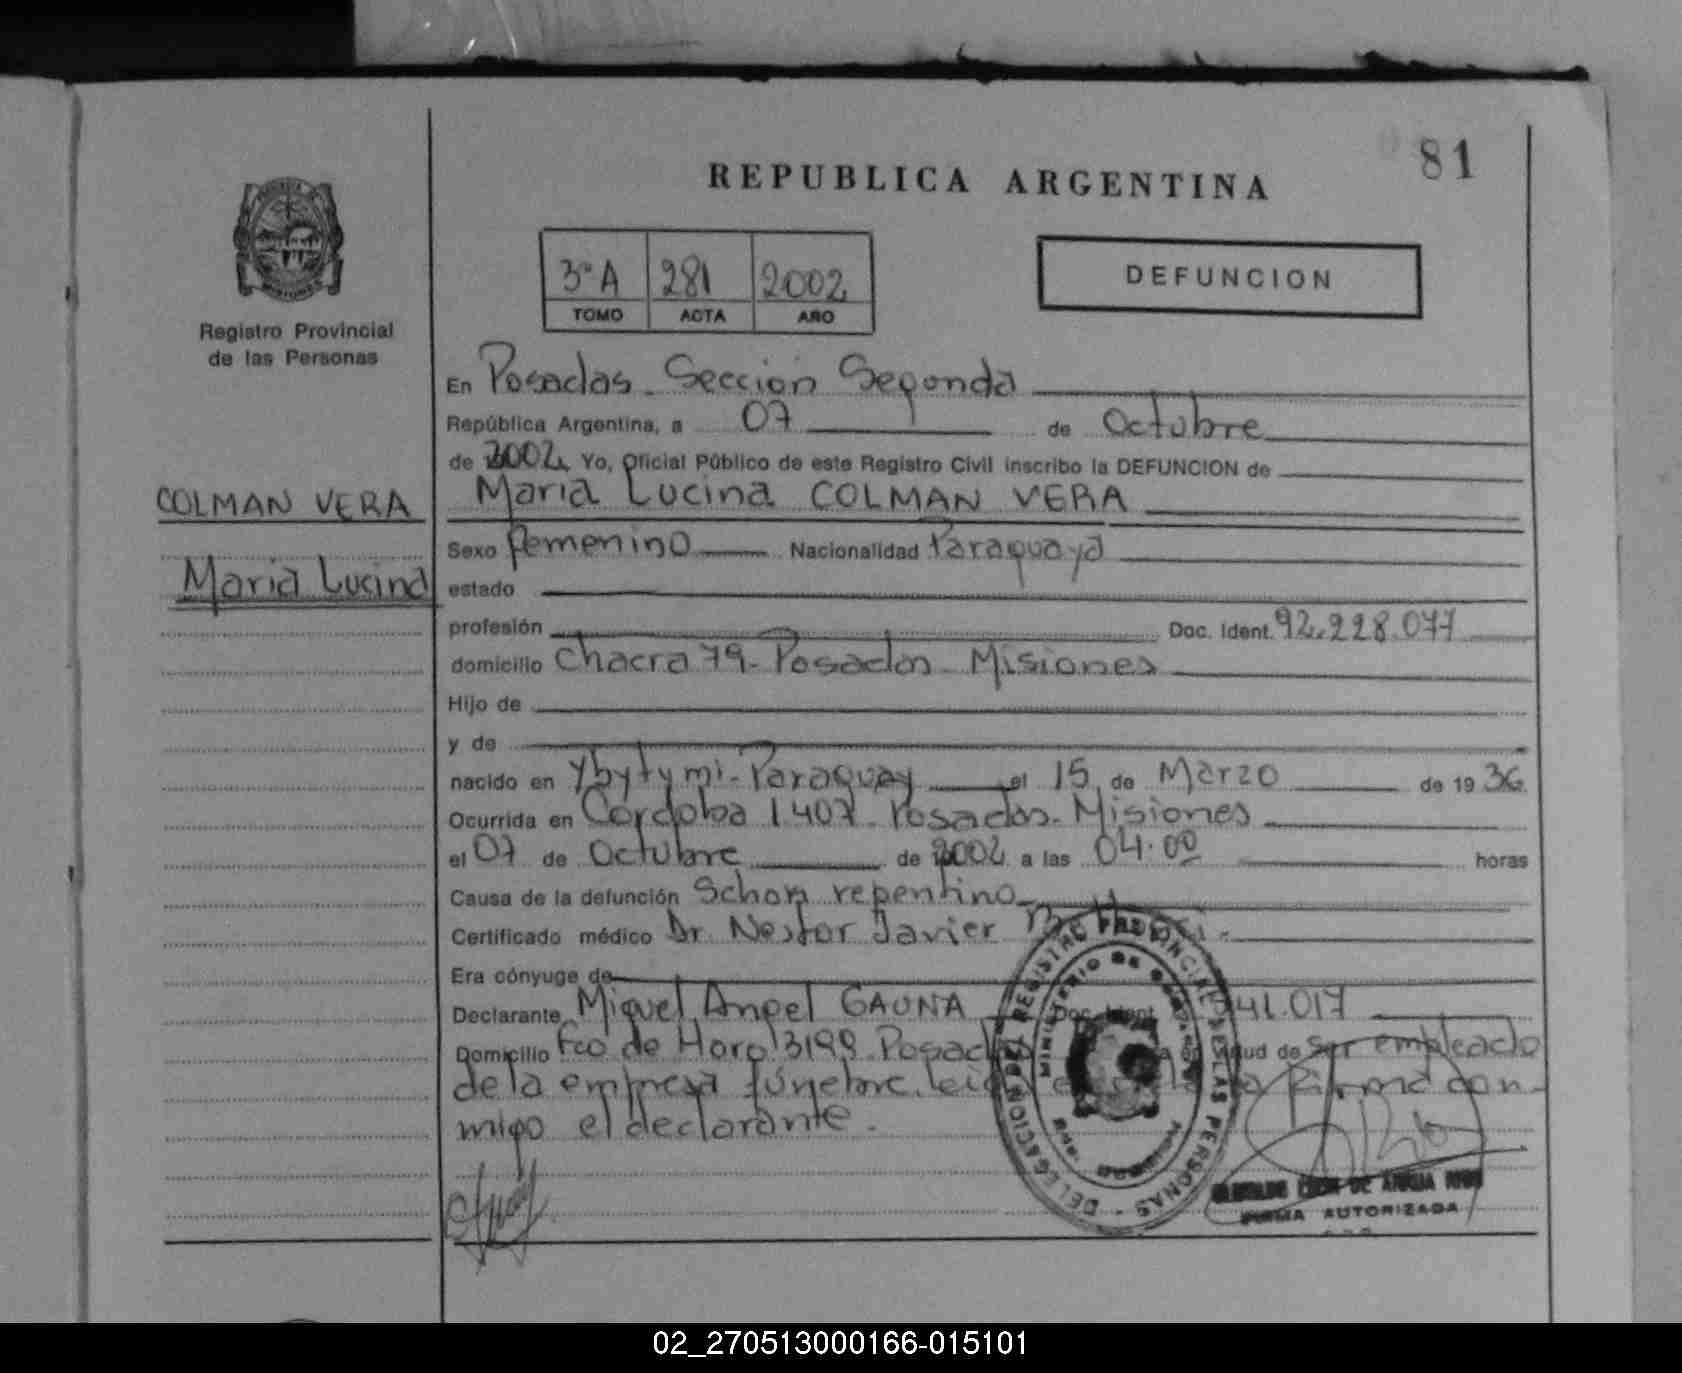 81
REPUBLICA ARGENTINA
3º A 281 2002
TOMO ACTA AÑO
DEFUNCION
MISIONES
Registro Provincial
de las Personas
COLMAN VERA
Maria Lucina
En Posadas - Sección Segonda
República Argentina, a 07 de Octubre
de 2002, Yo, Oficial Público de este Registro Civil inscribo la DEFUNCION de
Maria Lucina COLMAN VERA
Sexo femenino Nacionalidad Paraguaya
estado
profesión Doc. Ident. 92.228.077
domicilio Chacra 79 - Posadas - Misiones
Hijo de
y de
nacido en Ybytymi - Paraguay el 15 de Marzo de 1936
Ocurrida en Córdoba 1407 - Posadas - Misiones
el 07 de Octubre de 2002 a las 04.00 horas
Causa de la defunción Schok repentino
Certificado médico Dr. Nestor Javier
Era cónyuge de
Declarante Miguel Angel GAUNA Doc. Ident. 41.017
Domicilio Fco de Haro 3199 - Posadas de ser empleado
de la empresa fúnebre. firma con-
migo el declarante.
DELEGACION DEL REGISTRO PROVINCIAL DE LAS PERSONAS
MINISTERIO DE
FIRMA AUTORIZADA
02_270513000166-015101